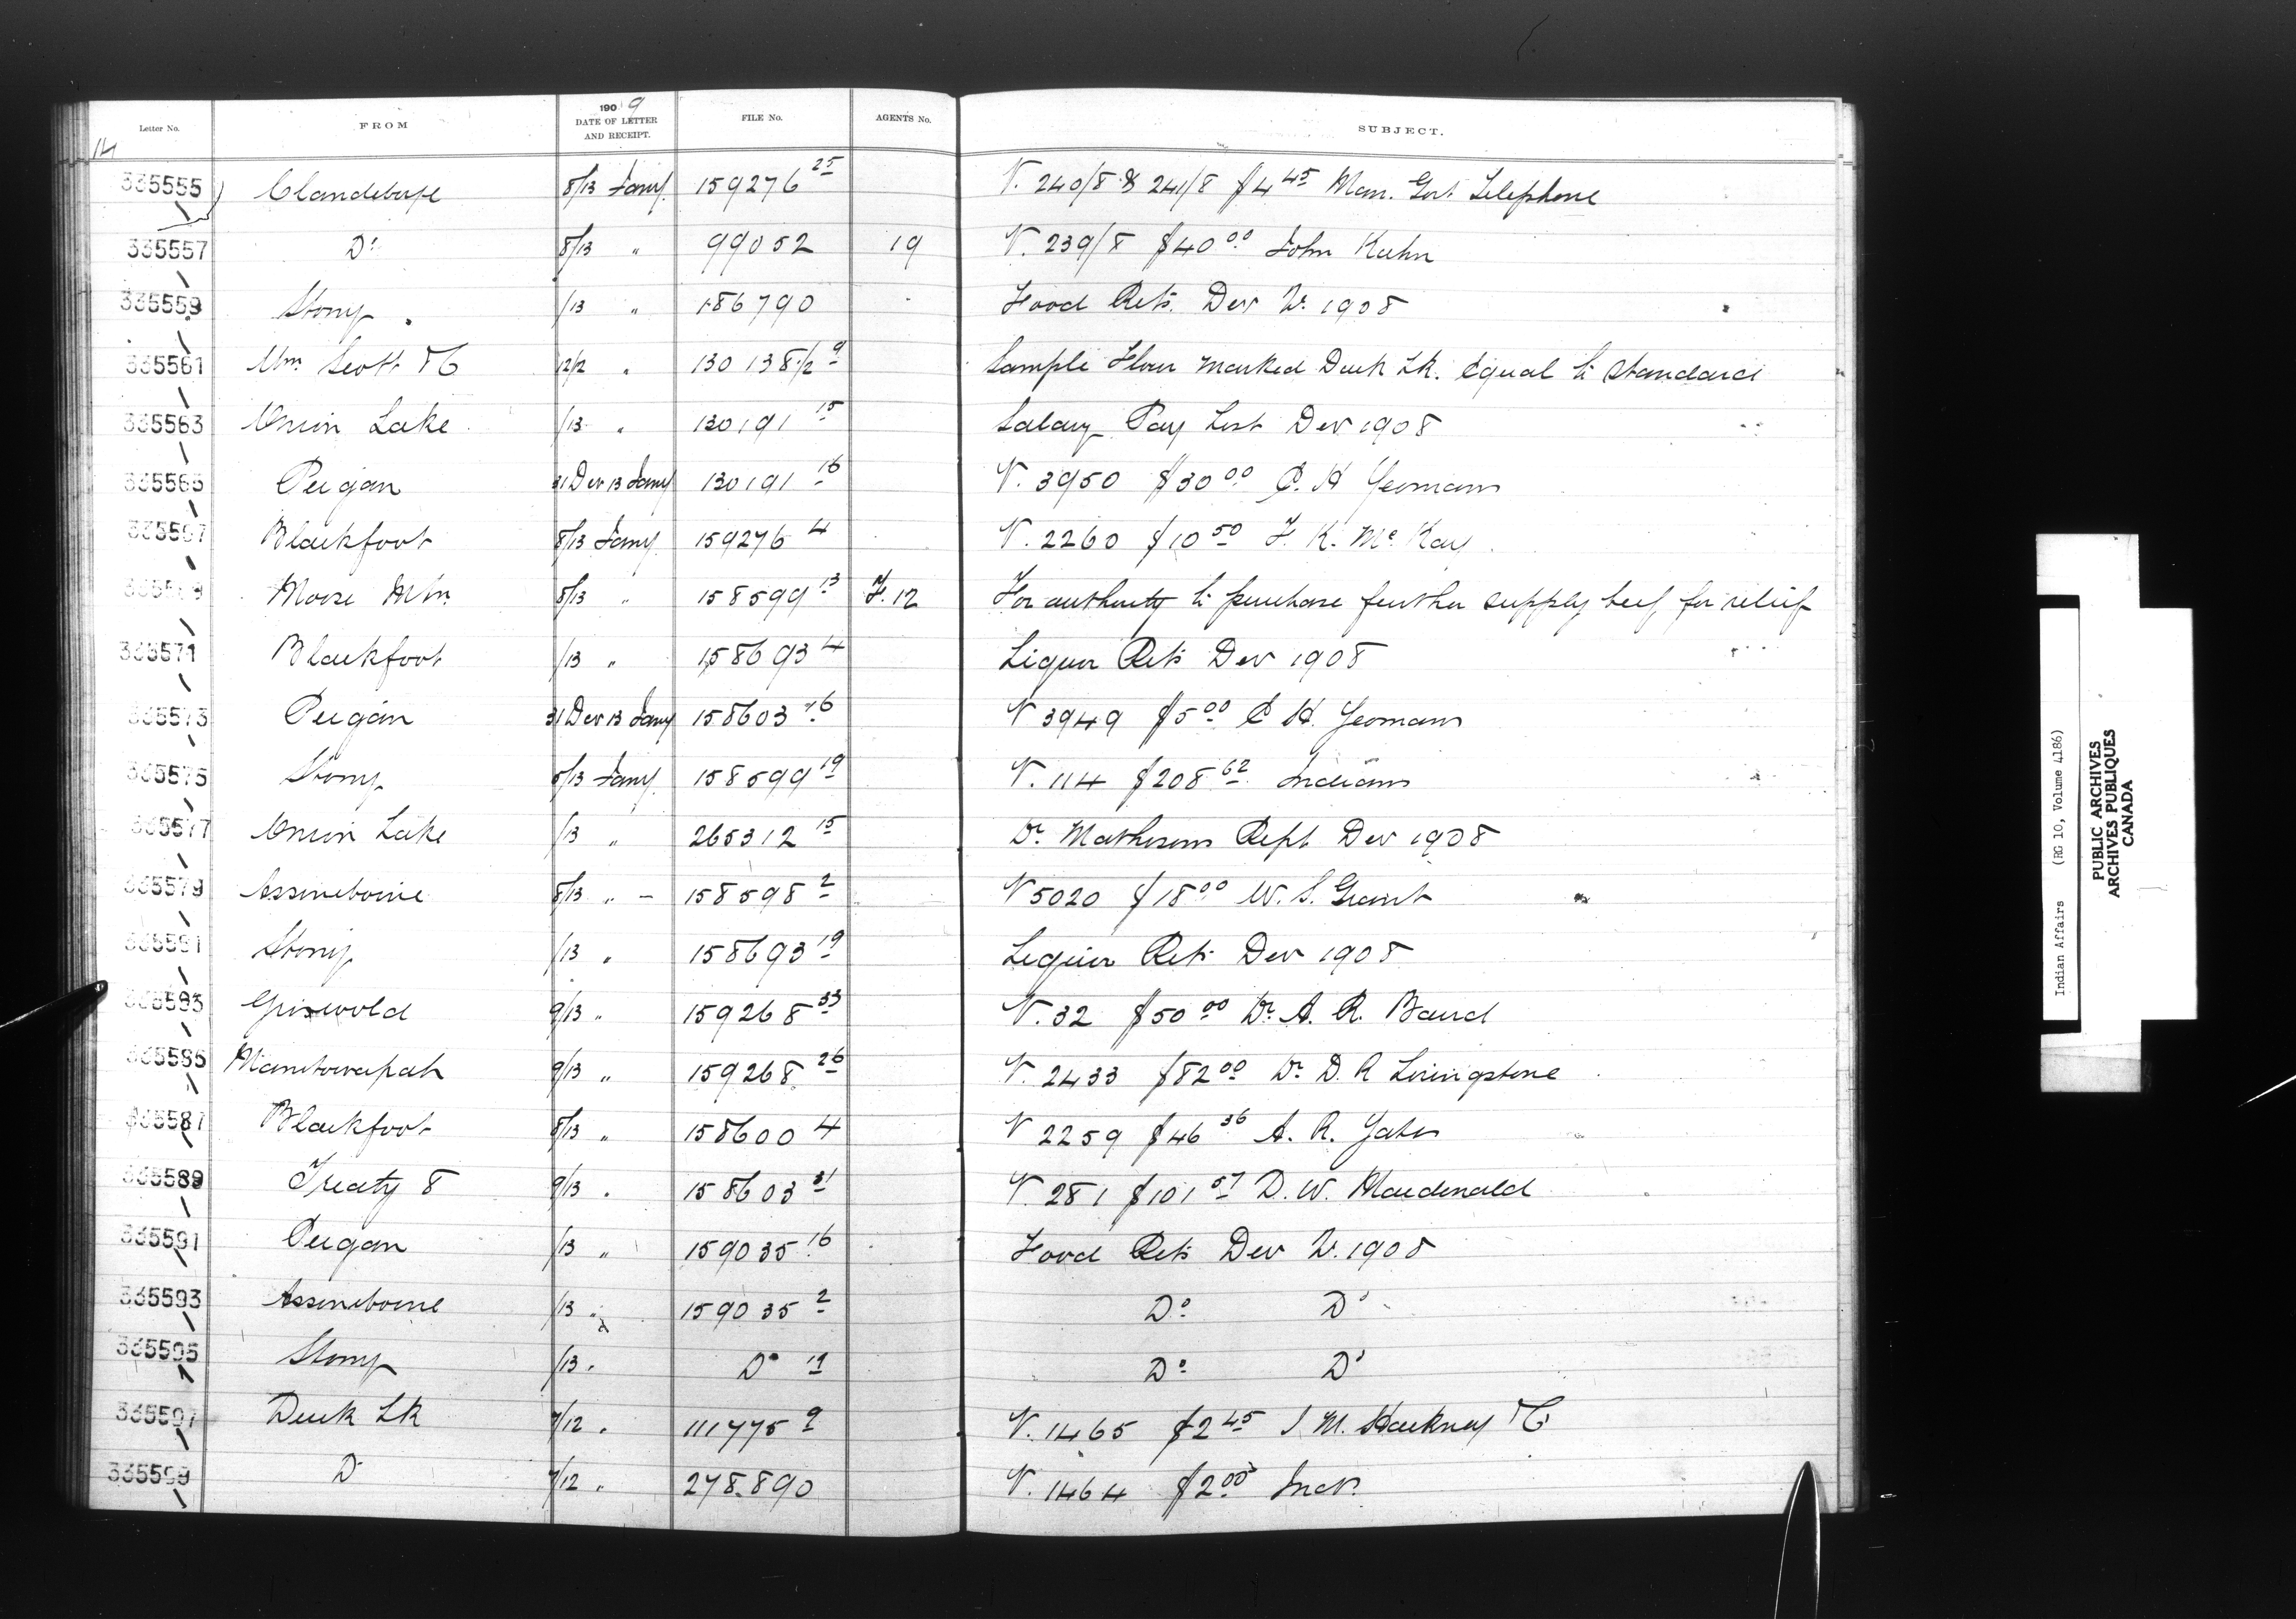 14
Letter No. FROM 1909 DATE OF LETTER AND RECEIPT. FILE No. AGENTS No. SUBJECT.
335555 Clandeboye 8/13 Jany. 159276 25 V. 240/8 & 241/8 $4 45 Man. Govt Telephone
335557 Do 8/13 " 99052 19 V. 239/8 $40 00 John Kuhn
335559 Stony /13 " 186790 Food Rets. Dec 1908
335561 Wm Scott TC 12/2 " 130138 1/2 9 Sample Flour marked Duck Lk. Equal to Standard
335563 Onion Lake /13 " 130191 15 Salary Pay List Dec 1908
335565 Peigan 31 Dec 13 Jany 130191 16 V. 3950 $30 00 C. H Yeomans
335567 Blackfoot 8/13 Jany 159276 4 V. 2260 $10 50 F. K. McKay
335569 Moose Mtn 8/13 " 158599 13 F. 12 For authority to purchase further supply beef for relief
335571 Blackfoot /13 " 158693 4 Liquor Rets Dec 1908
335573 Peigan 31 Dec 13 Jany 158603 16 V 3949 $5 00 C H. Yeomans
335575 Stony 8/13 Jany. 158599 19 V. 114 $208 62 Indians
335577 Onion Lake /13 " 265312 15 Dr Mathesons Rept Dec 1908
335579 Assiniboine 8/13 " 158598 2 V 5020 $18 00 W. S. Grant
335581 Stony /13 " 158693 19 Liquor Rets Dec 1908
335583 Griswold 9/13 " 159268 33 V. 32 $50 00 Dr A. R. Baird
335585 Manitowapah 9/13 " 159268 26 V. 2433 $82 00 Dr D. R Livingstone
335587 Blackfoot 8/13 " 158600 4 V 2259 $46 36 A. R. Yates
335589 Treaty 8 9/13 " 158603 31 V 281 $101 57 D. W. Macdonald
335591 Peigan /13 " 159035 16 Food Rets Dec 1908
335593 Assiniboine /13 " 159035 2 Do Do
335595 Stony /13 " Do 19 Do Do
335597 Duck Lk 7/12 " 111775 9 V. 1465 $2 45 J M. Hackney TC
335599 D 7/12 " 278890 V. 1464 $2 00
Indian Affairs (RG 10, Volume 4186)
PUBLIC ARCHIVES
ARCHIVES PUBLIQUES
CANADA